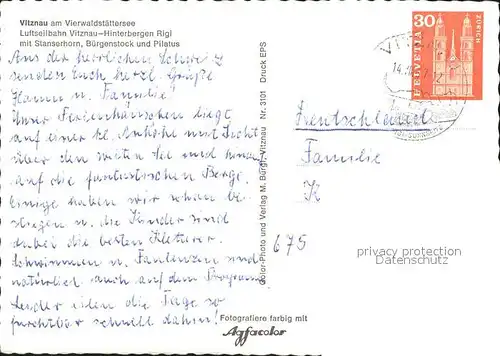 Vitznau am Vierwaldstättersee
Luftseilbahn Vitznau—Hinterbergen Rigi
mit Stanserhorn, Bürgenstock und Pilatus
Aus der herrlichen Schweiz
senden Euch herzl. Grüße
Hanm u. Familie!
Unser Ferienhäuschen liegt
auf einer kl. Anhöhe mit Sicht
über den weiten See und hinauf
auf die fantastischen Berge.
Einige haben wir schon be-
stiegen u. die Kinder sind
dabei die besten Kletterer.
Schwimmen u. Faulenzen sind
natürlich auch auf dem Programm
Leider eilen die Tage so
furchtbar schnell dahin!
Color-Photo und Verlag M. Bürgi, Vitznau Nr. 3101 Druck EPS
30
ZÜRICH
HELVETIA
Deutschland
Familie
K
675
privacy protection
Datenschutz
Fotografiere farbig mit
Agfacolor